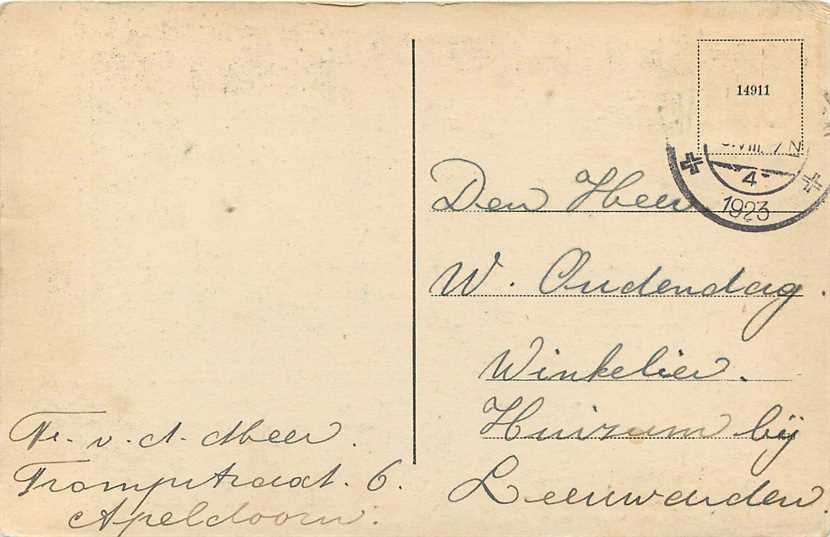 14911
VIII. 7 N
4
1923
Den Heer
W. Oudendag.
Winkelier.
Huizum bij
Leeuwarden.
Fr. v. d. Meer.
Trompstraat. 6.
Apeldoorn.